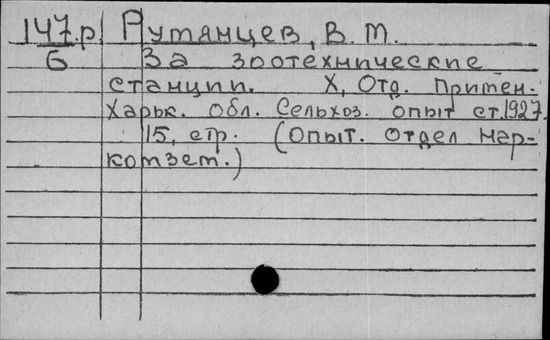 147.р. Румянцев, В. М.
Б За зоотехнические
станции. Х, Отд. Примен.
Харьк. обл. Сельхоз. опыт ст. 1927.
15, стр. (Опыт. отдел нар-
комзем.)